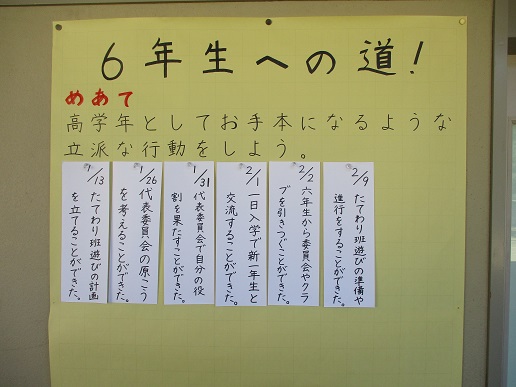 6年生への道!
めあて
高学年としてお手本になるような
立派な行動をしよう。
1/13
たてわり班遊びの計画
を立てることができた。
1/26
代表委員会の原こう
を考えることができた。
1/31
代表委員会で自分の役
割を果たすことができた。
2/1
一日入学で新一年生と
交流することができた。
2/2
六年生から委員会やクラ
ブを引きつぐことができた。
2/9
たてわり班遊びの準備や
進行をすることができた。